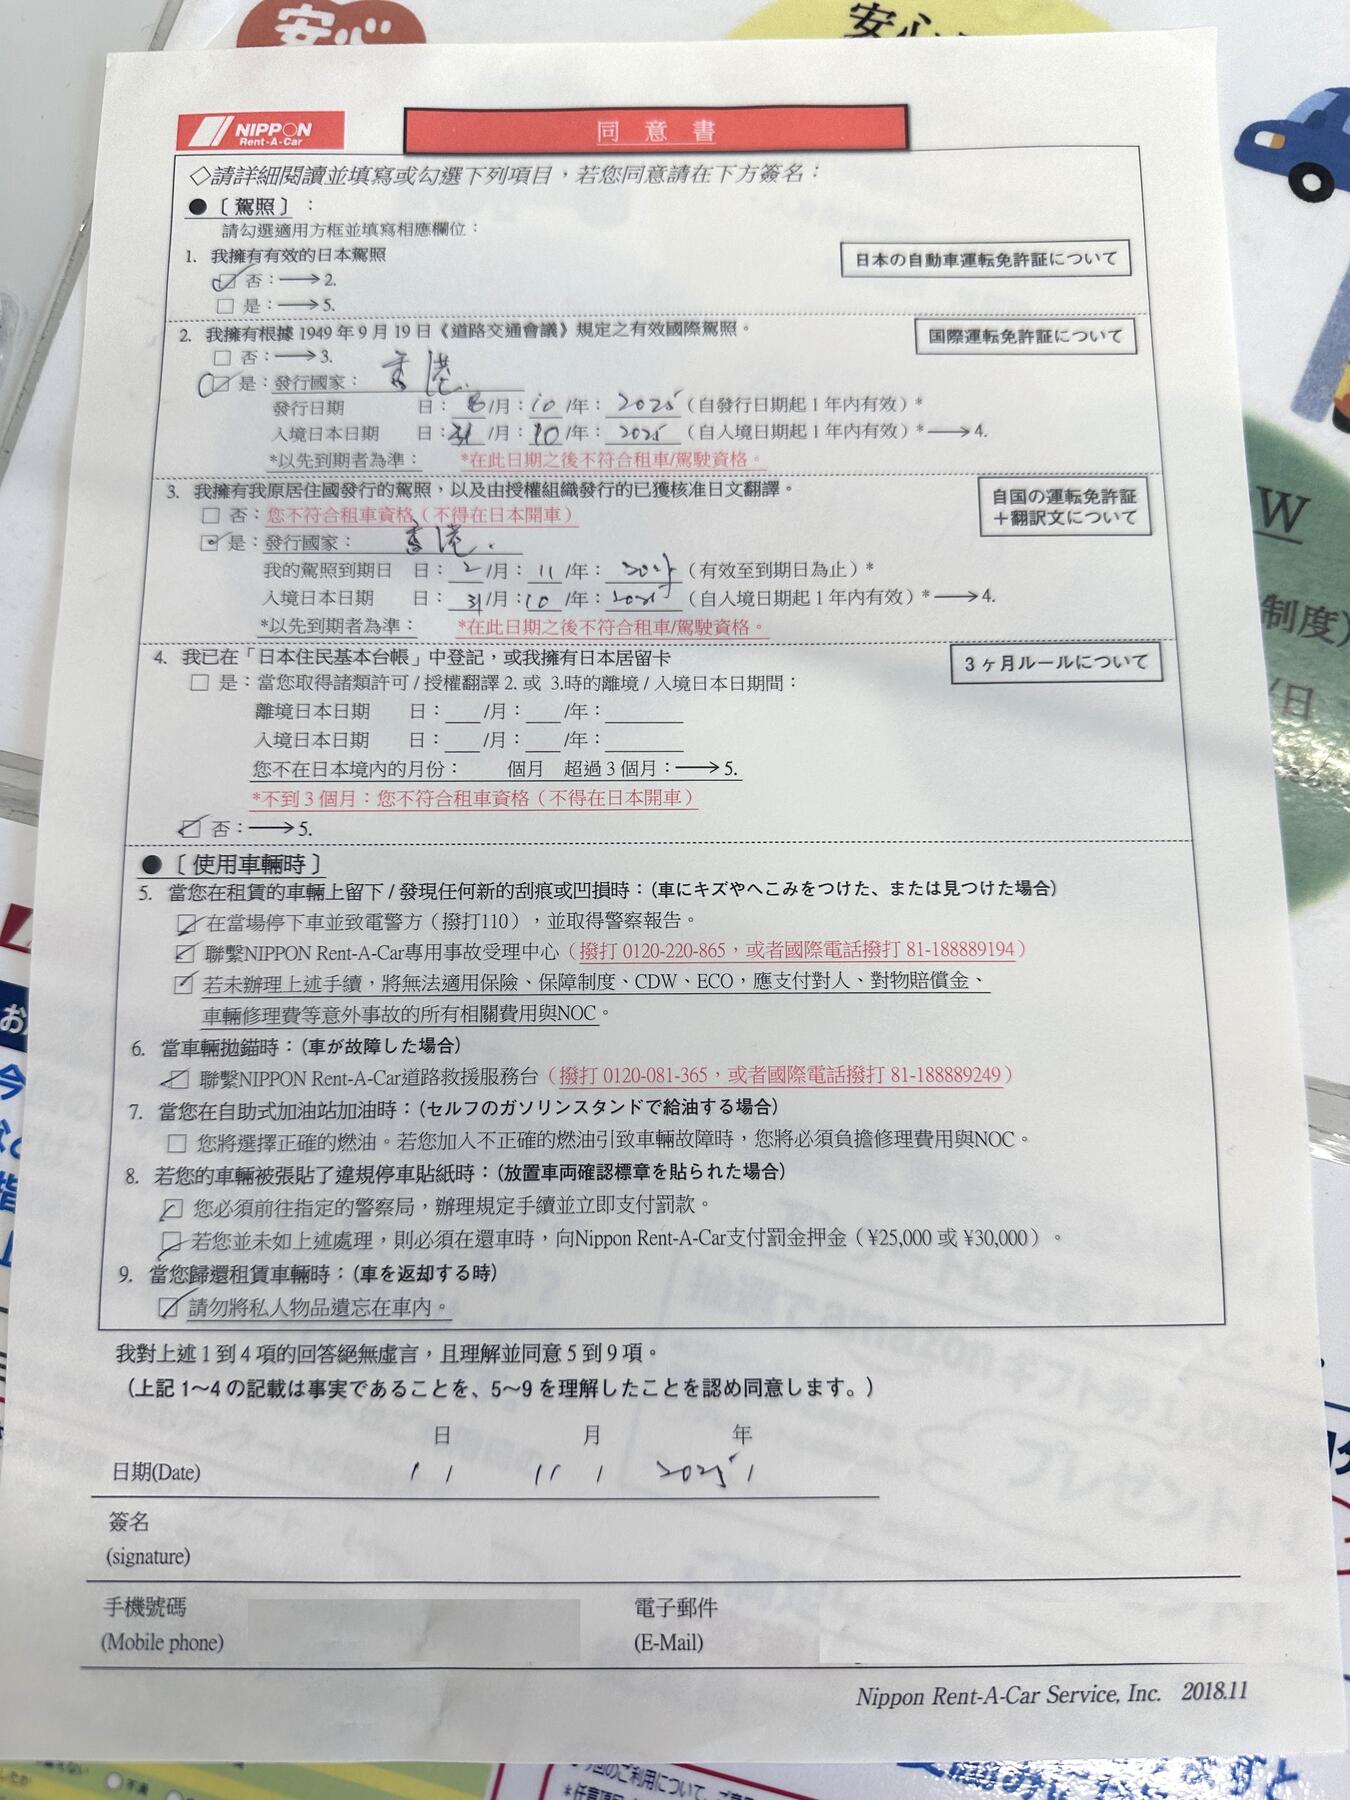 安心
安心
NIPPON
Rent-A-Car
同意書
◇請詳細閱讀並填寫或勾選下列項目，若您同意請在下方簽名：
●〔駕照〕：
請勾選適用方框並填寫相應欄位：
1. 我擁有有效的日本駕照
日本の自動車運転免許証について
否：→2.
是：→5.
2. 我擁有根據 1949 年 9 月 19 日《道路交通會議》規定之有效國際駕照。
国際運転免許証について
否：→3.
是：發行國家： 香港
發行日期 日：8/月：10/年：2025（自發行日期起 1 年內有效）*
入境日本日期 日：31/月：10/年：2025（自入境日期起 1 年內有效）*→4.
*以先到期者為準： *在此日期之後不符合租車/駕駛資格。
3. 我擁有我原居住國發行的駕照，以及由授權組織發行的已獲核准日文翻譯。
自国の運転免許証
＋翻訳文について
否：您不符合租車資格（不得在日本開車）
是：發行國家： 香港.
我的駕照到期日 日：2/月：11/年：（有效至到期日為止）*
入境日本日期 日：31/月：10/年：2025（自入境日期起 1 年內有效）*→4.
*以先到期者為準： *在此日期之後不符合租車/駕駛資格。
4. 我已在「日本住民基本台帳」中登記，或我擁有日本居留卡
3ヶ月ルールについて
是：當您取得諸類許可 / 授權翻譯 2. 或 3.時的離境 / 入境日本日期間：
離境日本日期 日：/月：/年：
入境日本日期 日：/月：/年：
您不在日本境內的月份： 個月 超過 3 個月：→5.
*不到 3 個月：您不符合租車資格（不得在日本開車）
否：→5.
●〔使用車輛時〕
5. 當您在租賃的車輛上留下 / 發現任何新的刮痕或凹損時：（車にキズやへこみをつけた、または見つけた場合）
在當場停下車並致電警方（撥打110），並取得警察報告。
聯繫NIPPON Rent-A-Car專用事故受理中心（撥打 0120-220-865，或者國際電話撥打 81-188889194）
若未辦理上述手續，將無法適用保險、保障制度、CDW、ECO，應支付對人、對物賠償金、
車輛修理費等意外事故的所有相關費用與NOC。
6. 當車輛拋錨時：（車が故障した場合）
聯繫NIPPON Rent-A-Car道路救援服務台（撥打 0120-081-365，或者國際電話撥打 81-188889249）
7. 當您在自助式加油站加油時：（セルフのガソリンスタンドで給油する場合）
您將選擇正確的燃油。若您加入不正確的燃油引致車輛故障時，您將必須負擔修理費用與NOC。
8. 若您的車輛被張貼了違規停車貼紙時：（放置車両確認標章を貼られた場合）
您必須前往指定的警察局，辦理規定手續並立即支付罰款。
若您並未如上述處理，則必須在還車時，向Nippon Rent-A-Car支付罰金押金（¥25,000 或 ¥30,000）。
9. 當您歸還租賃車輛時：（車を返却する時）
請勿將私人物品遺忘在車內。
我對上述 1 到 4 項的回答絕無虛言，且理解並同意 5 到 9 項。
（上記 1～4 の記載は事実であることを、5～9 を理解したことを認め同意します。）
日 月 年
日期(Date) 1 / 11 / 2025 /
簽名
(signature)
手機號碼
(Mobile phone)
電子郵件
(E-Mail)
Nippon Rent-A-Car Service, Inc. 2018.11
W
制度)
/日
お
今
プレゼント!
不満